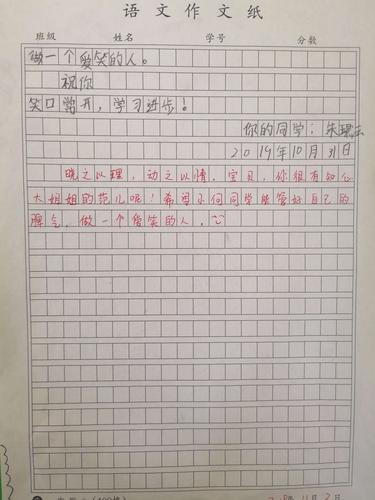 语文作文纸
班级 姓名 学号 分数
做一个爱笑的人。
祝你
笑口常开,学习进步!
你的同学:朱
2019年10月31日
晓之以理,动之以情,宝贝,你很有知心
大姐姐的范儿呢!希望小何同学能管好自己的
脾气,做一个爱笑的人。
11月2日